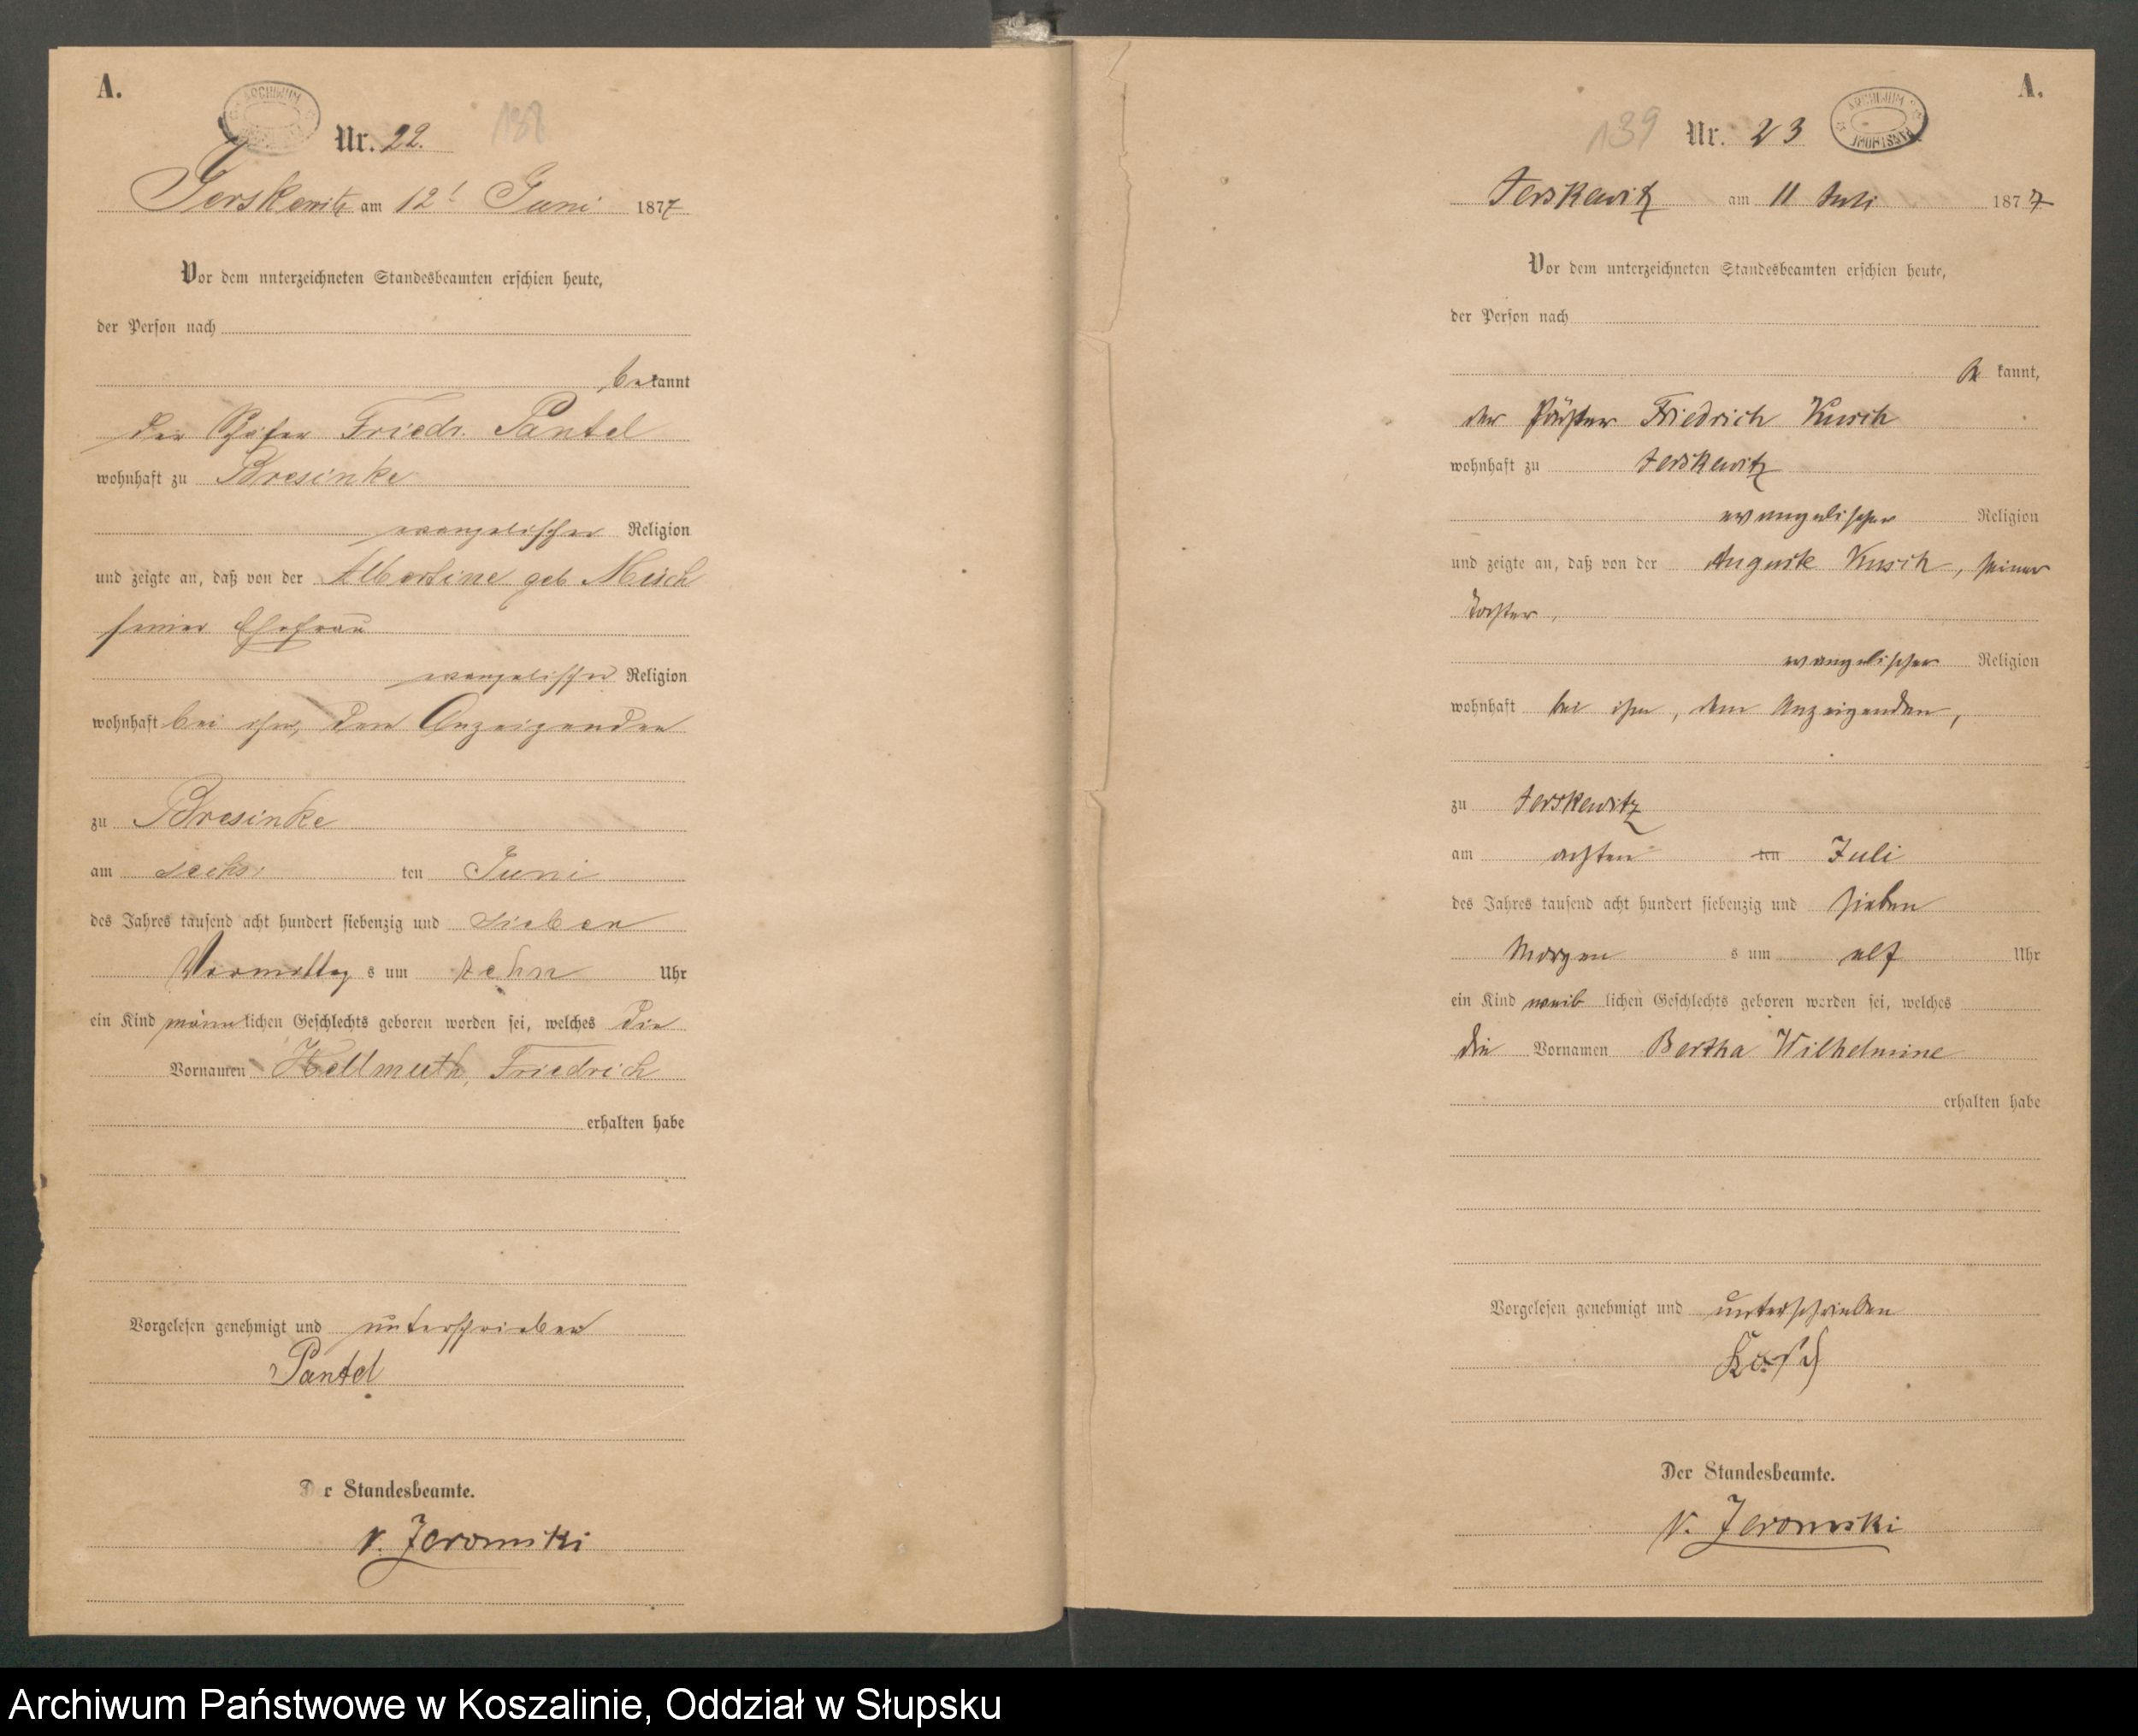 A.
ARCHIWUM
Nr. 22.
138
Jerskewitz am 12t Juni 1877
Vor dem unterzeichneten Standesbeamten erschien heute,
der Person nach
bekannt
der Schäfer Friedr. Pantel
wohnhaft zu Bresinke
evangelischer Religion
und zeigte an, daß von der Albertine geb. Misch
seiner Ehefrau
evangelischer Religion
wohnhaft bei ihm, dem Anzeigenden
zu Bresinke
am sechs ten Juni
des Jahres tausend acht hundert siebenzig und sieben
Vormittag s um zehn Uhr
ein Kind männlichen Geschlechts geboren worden sei, welches die
Vornamen Hellmuth, Friedrich
erhalten habe
Vorgelesen genehmigt und unterschrieben
Pantel
Der Standesbeamte.
v. Jeromski
A.
139
Nr. 23
ARCHIWUM
Jerskewitz am 11 Juli 1877
Vor dem unterzeichneten Standesbeamten erschien heute,
der Person nach
be kannt,
der Förster Friedrich Kusch
wohnhaft zu Jerskewitz
evangelischer Religion
und zeigte an, daß von der Auguste Kusch, seiner
Tochter,
evangelischer Religion
wohnhaft bei ihm, dem Anzeigenden,
zu Jerskewitz
am achten ten Juli
des Jahres tausend acht hundert siebenzig und sieben
Morgen s um elf Uhr
ein Kind weib lichen Geschlechts geboren worden sei, welches
die Vornamen Bertha Wilhelmine
erhalten habe
Vorgelesen genehmigt und unterschrieben
Kusch
Der Standesbeamte.
v. Jeromski
Archiwum Państwowe w Koszalinie, Oddział w Słupsku